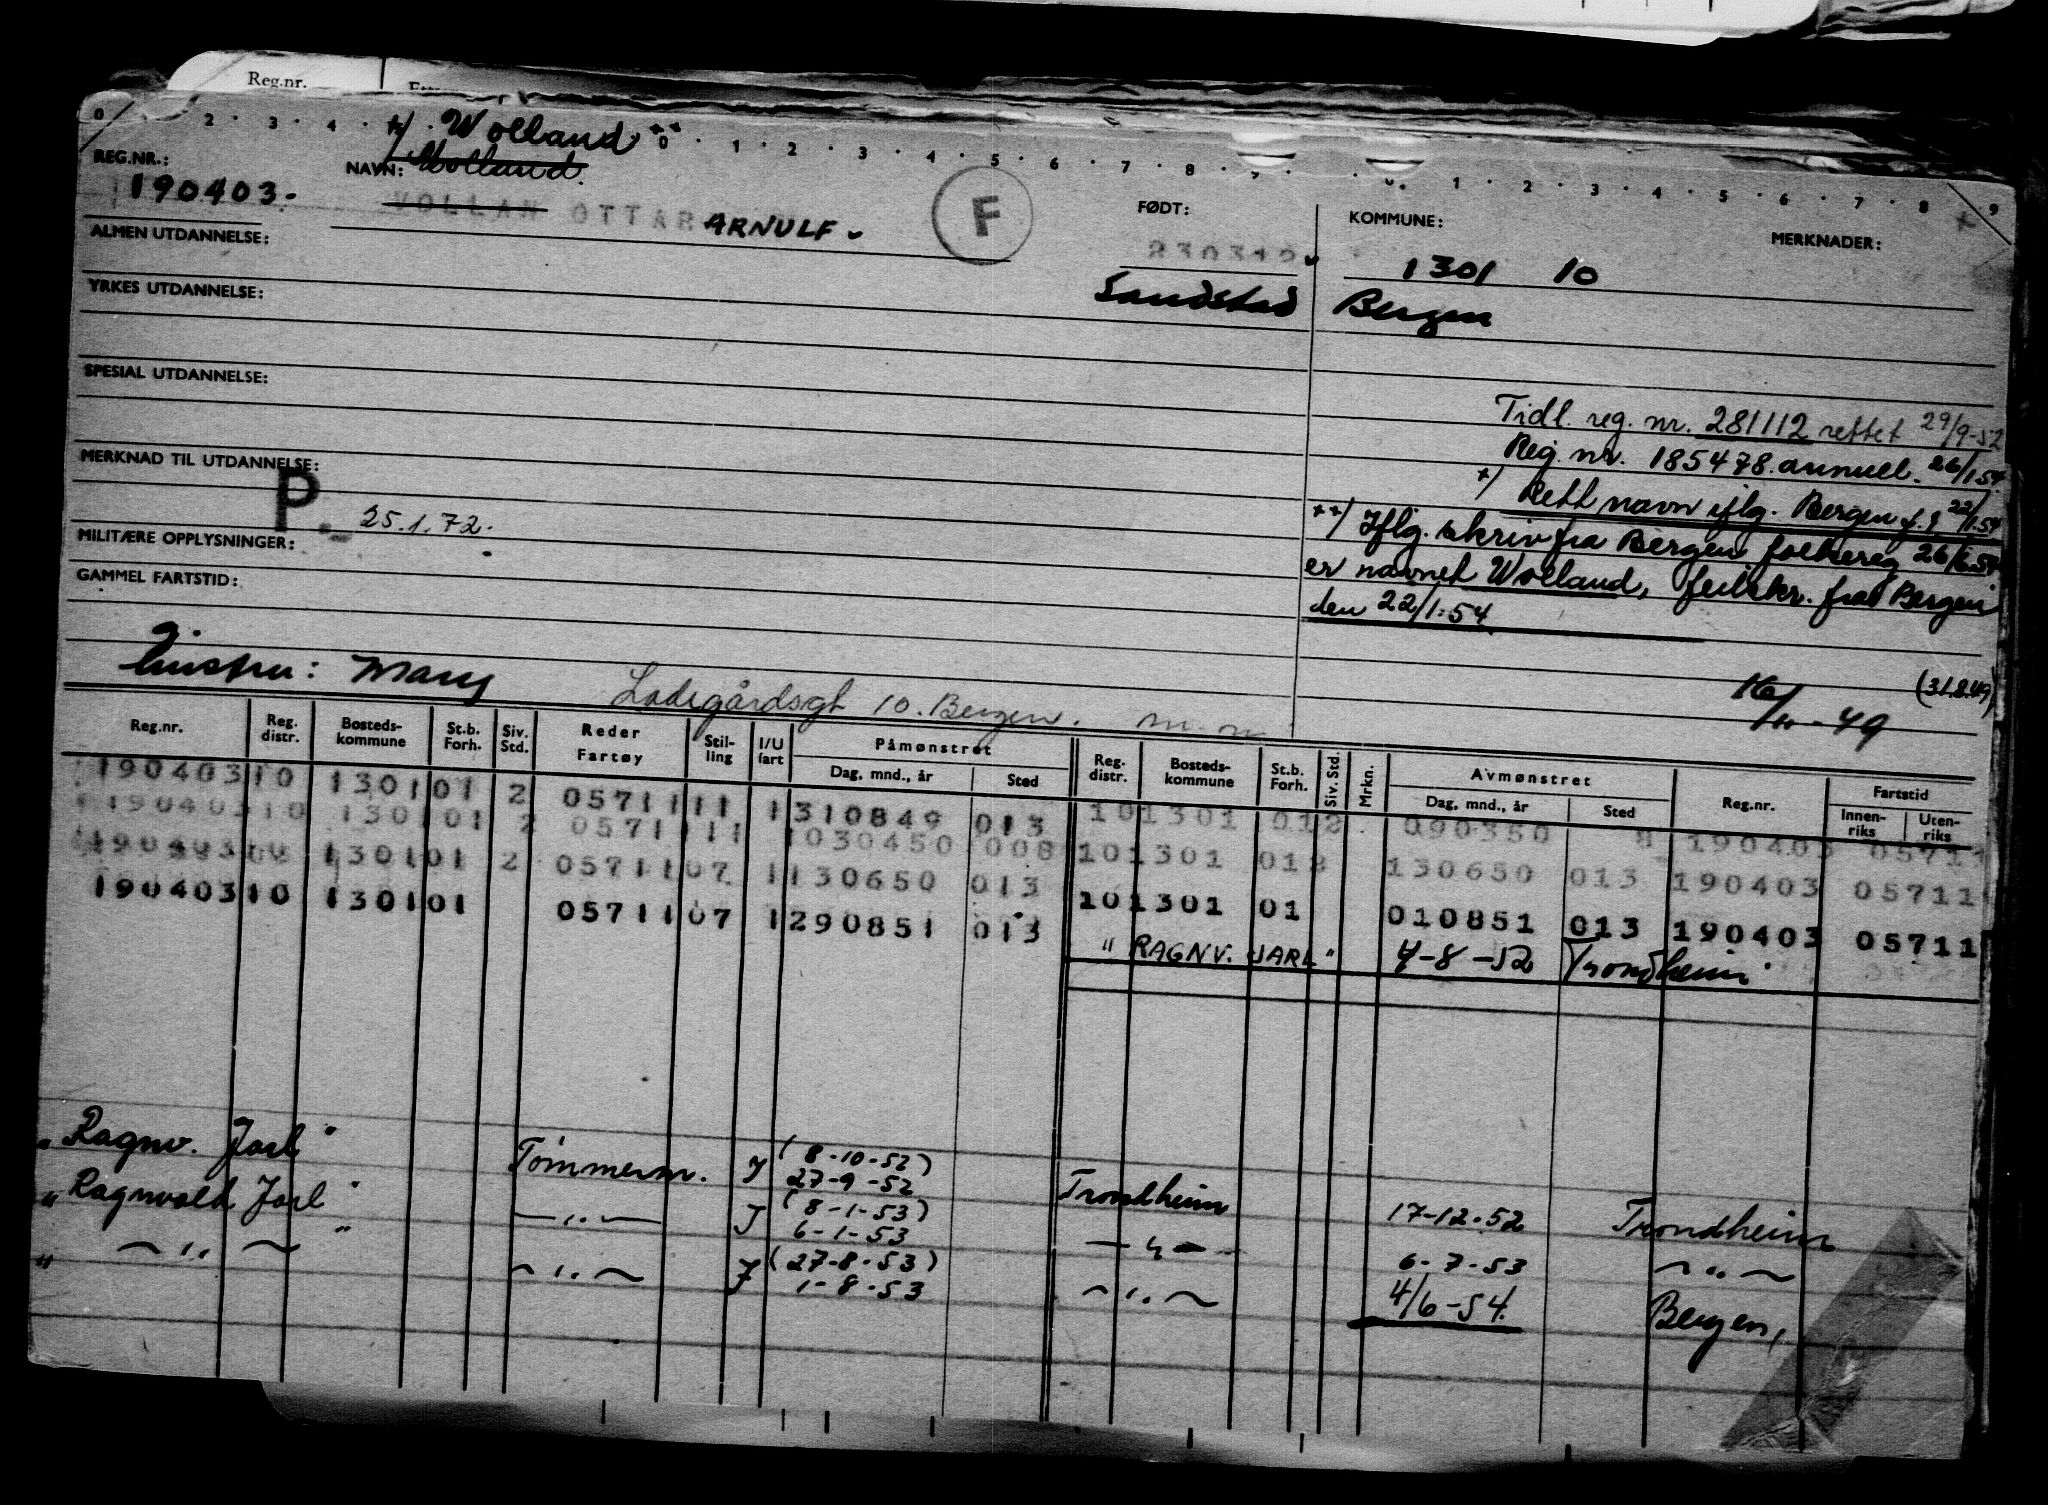 Reg.nr.
0 2 · 3 · 4 · 0 · 1 · 2 · 3 · 4 · 5 · 6 · 7 · 8 · 9 · 1 · 2 · 3 · 4 · 5 · 6 · 7 · 8 · 9
+/ Wolland ++
REG.NR.: NAVN: Molland.
190403. VOLLAN OTTAR ARNULF
F
FØDT: KOMMUNE: MERKNADER:
230312 1301 10
Sandstad Bergen
ALMEN UTDANNELSE:
YRKES UTDANNELSE:
SPESIAL UTDANNELSE:
Tidl. reg. nr. 281112 rettet 29/9-52
Reg. nr. 185478 annull. 26/1 54
+/ Rett navn iflg. Bergen f.r. 22/1.54
++/ Iflg. skriv fra Bergen folkereg 26/6.54
er navnet Wolland, feilskr. fra Bergen
den 22/1-54
MERKNAD TIL UTDANNELSE:
P. 25.1.72.
MILITÆRE OPPLYSNINGER:
GAMMEL FARTSTID:
Hustru: Mary Ladegårdsgt 10. Bergen.
(31.8.49)
Reg.nr. Reg. distr. Bosteds-kommune St.b. Forh. Siv. Std. Reder Fartøy Stil-ling I/U fart Påmønstret Dag, mnd., år Sted Reg. distr. Bosteds-kommune St.b. Forh. Siv. Std. Mrkn. Avmønstret Dag, mnd., år Sted Reg.nr. Fartstid Innen-riks Uten-riks
190403 10 1301 01 2 05711 11 1 310849 013 10 1301 01 2 090350 8 190403 05711
190403 10 1301 01 2 05711 11 1 030450 008 10 1301 01 2 130650 013 190403 05711
190403 10 1301 01 2 05711 07 1 130650 013 10 1301 01 010851 013 190403 05711
190403 10 1301 01 05711 07 1 290851 013 "RAGNV. JARL" 4-8-52 Trondheim
"Ragnv. Jarl" Tømmerm. I (8-10-52) 27-9-52 Trondheim 17-12-52 Trondheim
"Ragnvald Jarl" —"— I (8-1-53) 6-1-53 —"— 6-7-53 —"—
" —"— " —"— I (27-8-53) 1-8-53 —"— 4/6-54. Bergen,